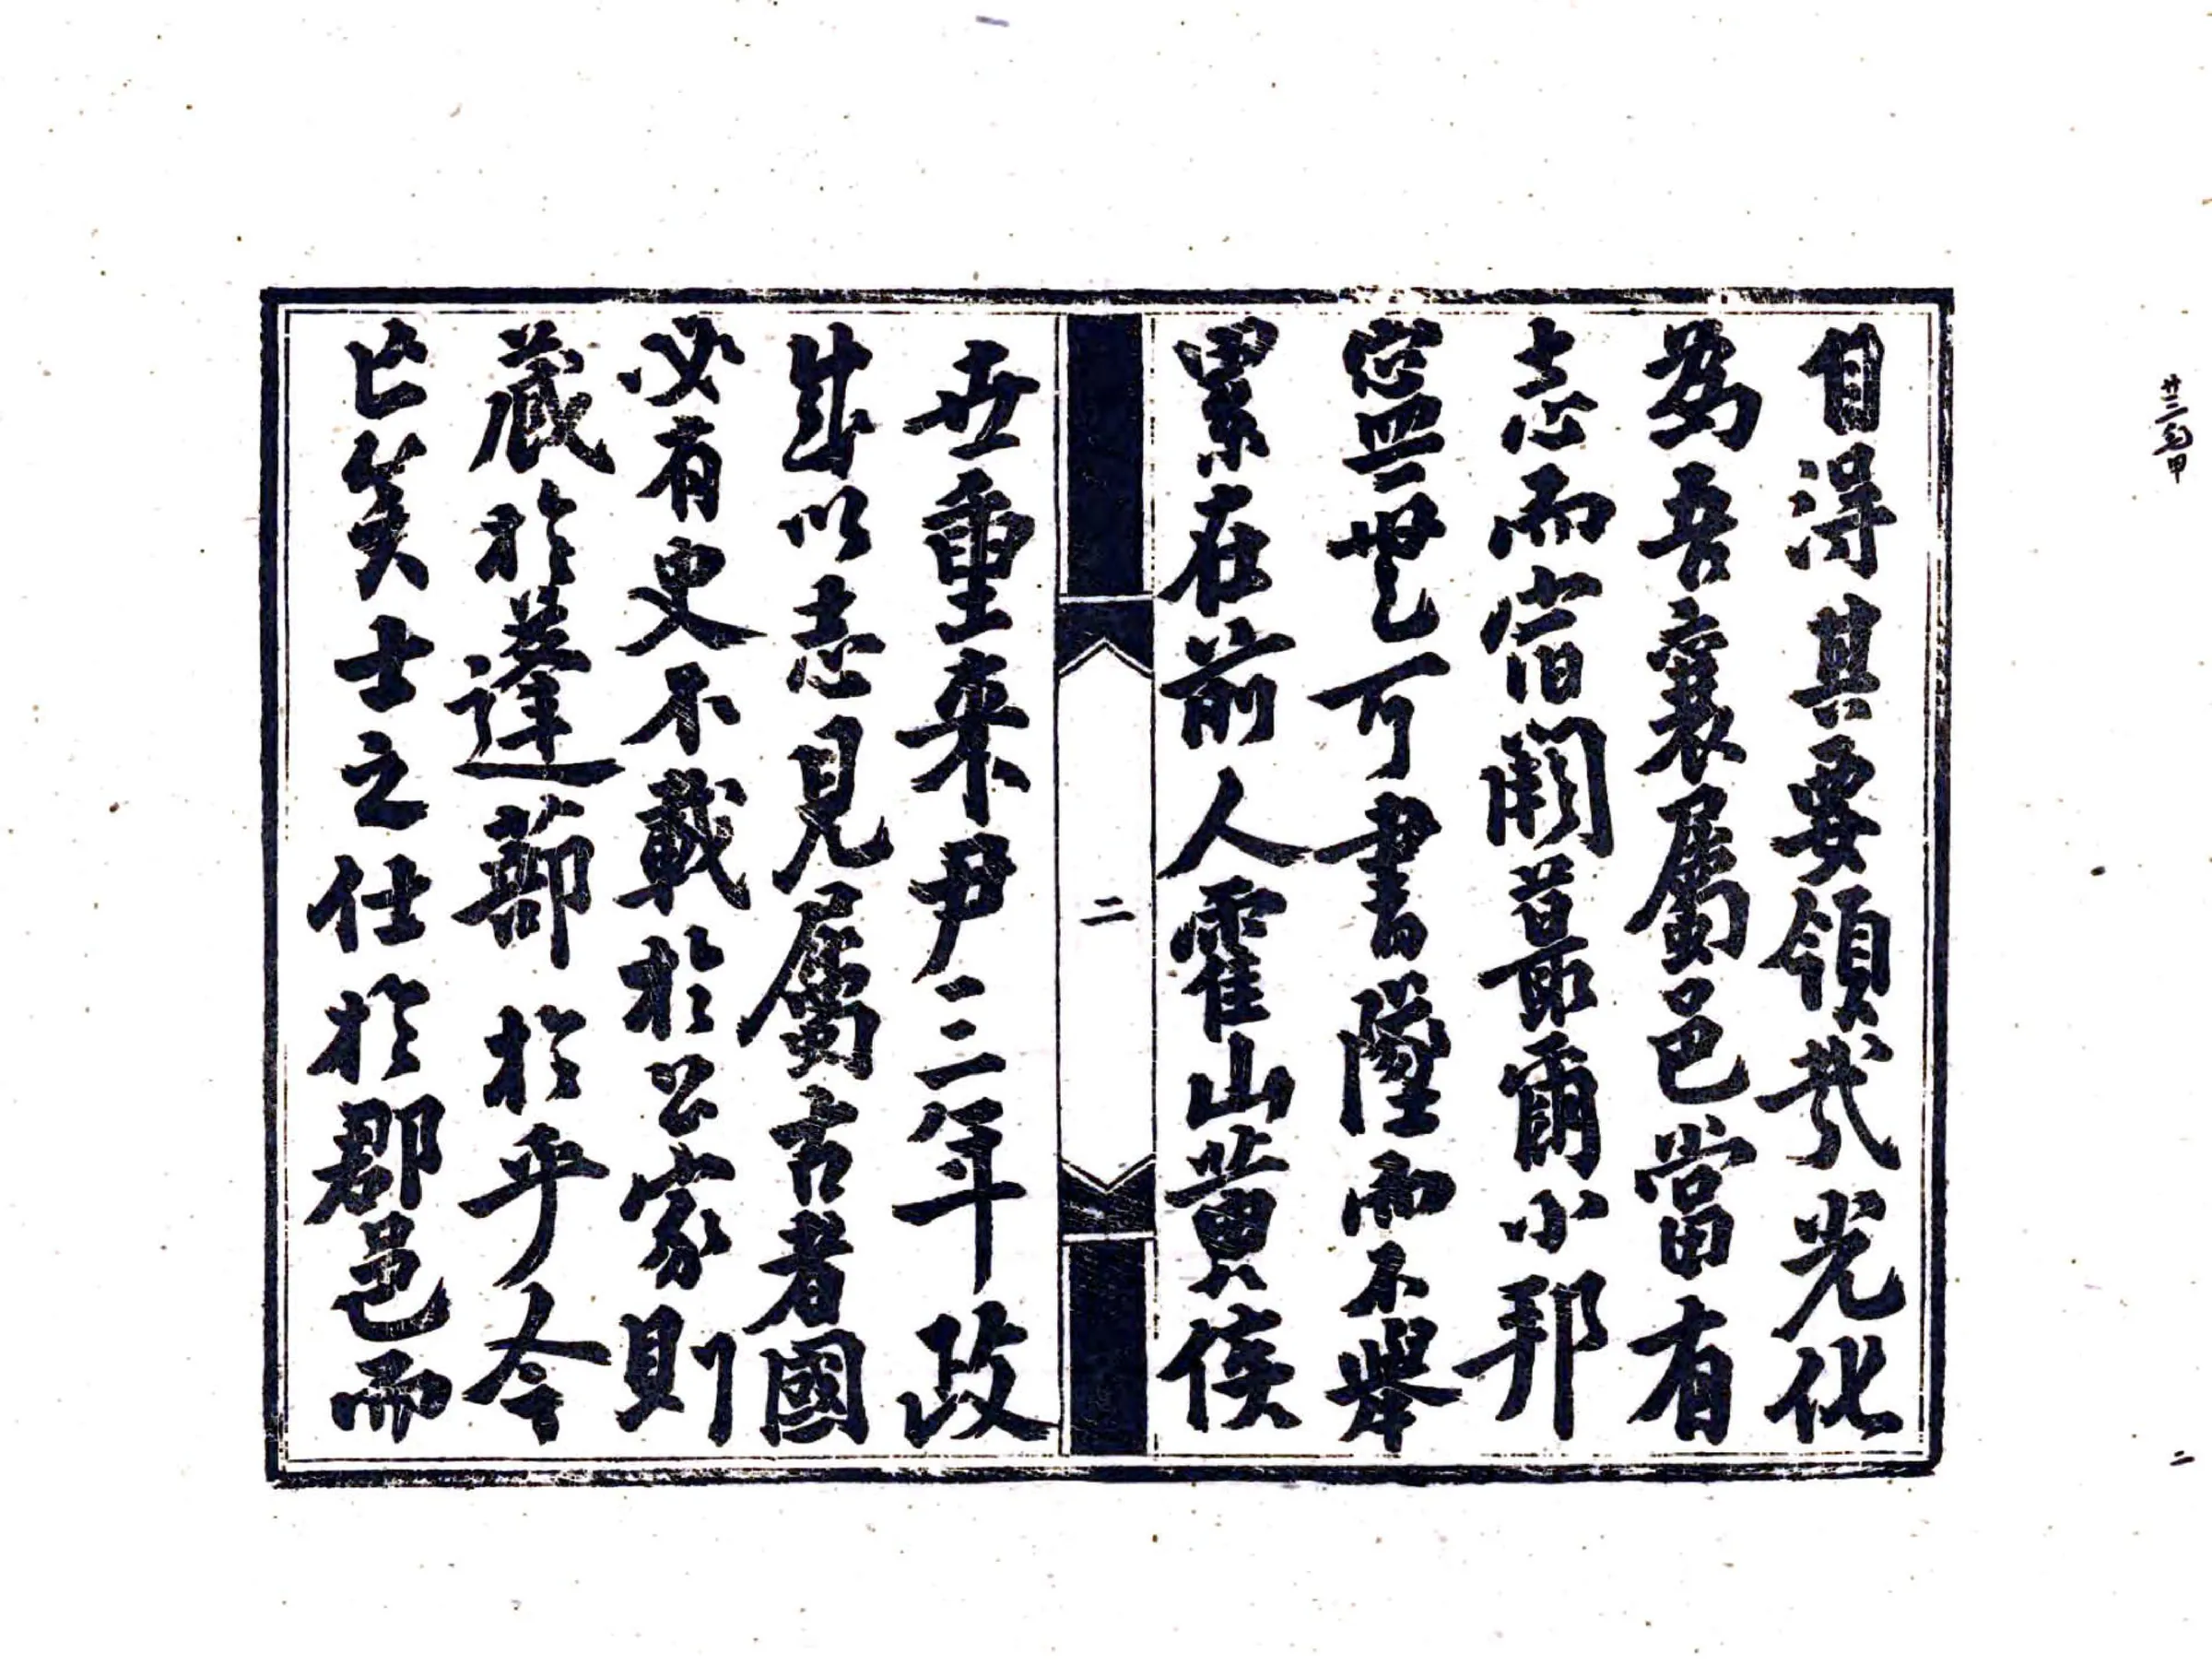 目得其要領哉光化
為吾襄屬邑當有
志而宿闕蕞爾小邦
寧無可書墜而不舉
累在前人霍山黃侯
二
世重來尹三年政
成以志見屬古者國
必有史不載於公家則
藏於蓬蔀於乎今
亡矣士之仕於郡邑而
二